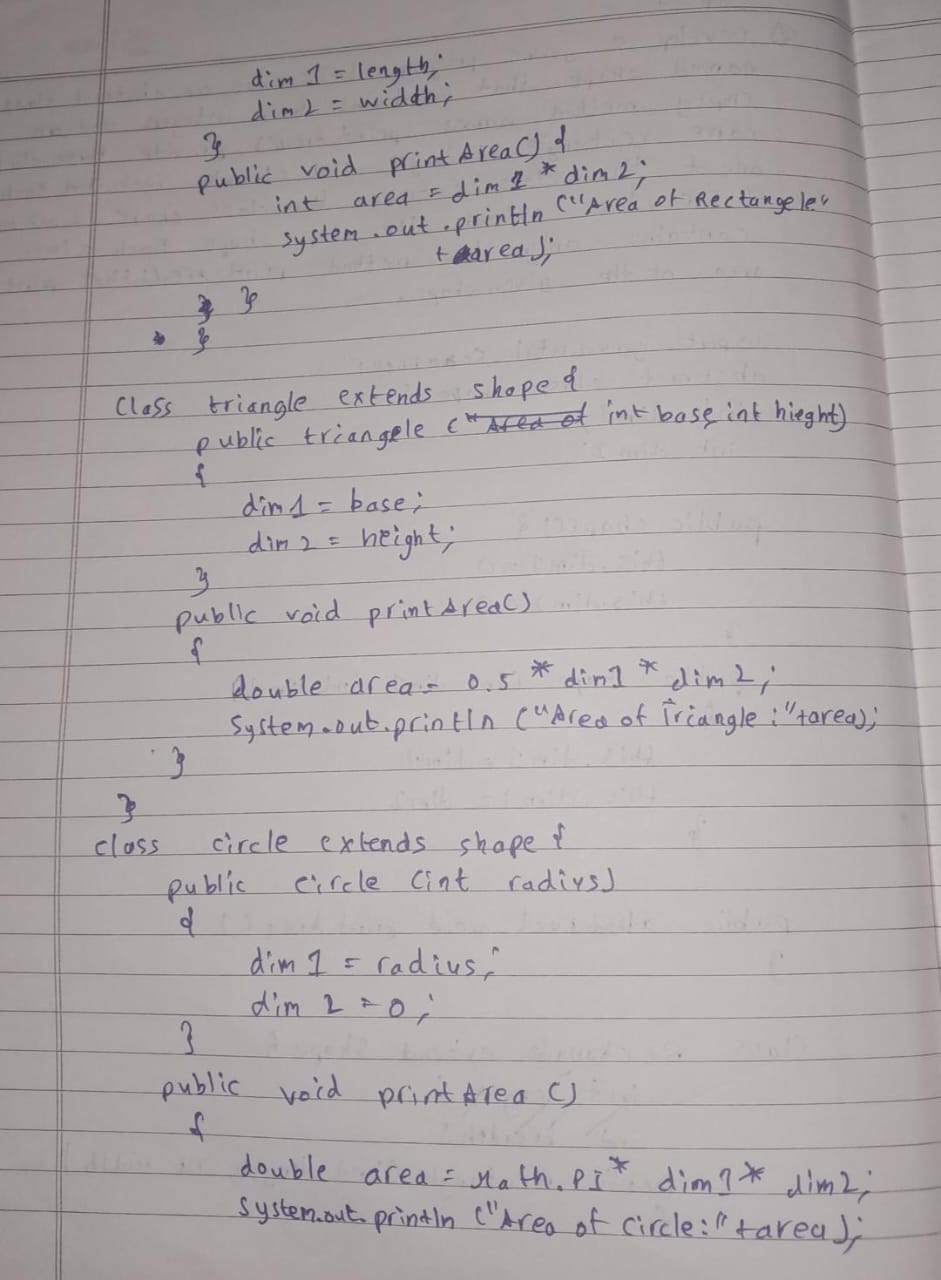 dim 1 = length;
dim 2 = width;
}
public void print Area() {
int area = dim 1 * dim 2;
system.out.println ("Area of Rectangele"
+ area);
}
}
Class triangle extends shape {
public triangele (" Area of int base, int hieght)
{
dim 1 = base;
dim 2 = height;
}
public void print Area()
{
double area = 0.5 * dim1 * dim 2;
System.out.println ("Area of Triangle :"+area);
}
}
class circle extends shape {
public circle (int radius)
{
dim 1 = radius;
dim 2 = 0;
}
public void print Area ()
{
double area = Math.PI * dim1 * dim2;
System.out.println ("Area of circle:" + area);